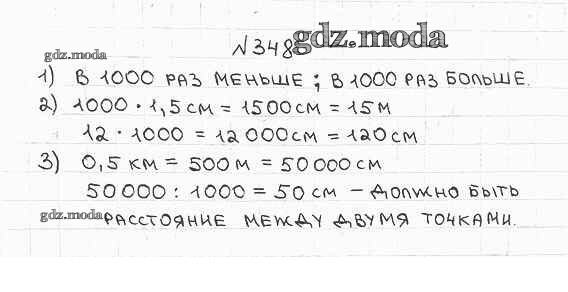 №348 gdz.moda
gdz.moda
1) В 1000 РАЗ МЕНЬШЕ; В 1000 РАЗ БОЛЬШЕ.
2) 1000 · 1,5 СМ = 1500 СМ = 15 М
12 · 1000 = 12 000 СМ = 120 СМ
3) 0,5 КМ = 500 М = 50 000 СМ
50 000 : 1000 = 50 СМ – ДОЛЖНО БЫТЬ
gdz.moda РАССТОЯНИЕ МЕЖДУ ДВУМЯ ТОЧКАМИ.